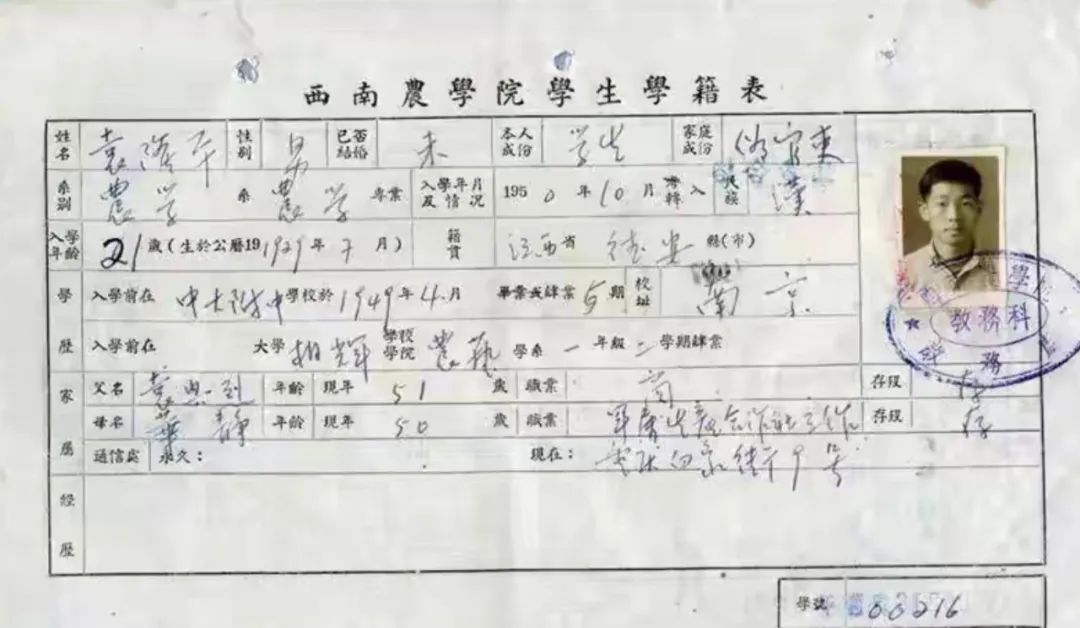 西南農學院學生學籍表
姓名 袁隆平 性别 男 已否結婚 未 本人成份 学生 家庭成份
系别 農学 系 農学 專業 入學年月及情况 1950年10月 轉入 民族 漢
入學年齡 21歲(生於公曆191929年7月) 籍貫 江西省 德安 縣(市)
學 入學前在 中大附中 學校於1949年4月 畢業或肄業 5期 校址 南京
歷 入學前在 大學 相輝 學校學院 農藝 學系 一 年級 二 學期肄業
家 父名 袁興烈 年齡 現年 51 歲 職業 商 存殁 存
母名 華静 年齡 現年 50 歲 職業 生産合作社工作 存殁 存
屬 通信處 永久: 現在: 重庆 街9号
經歷
學號 00216
教務科